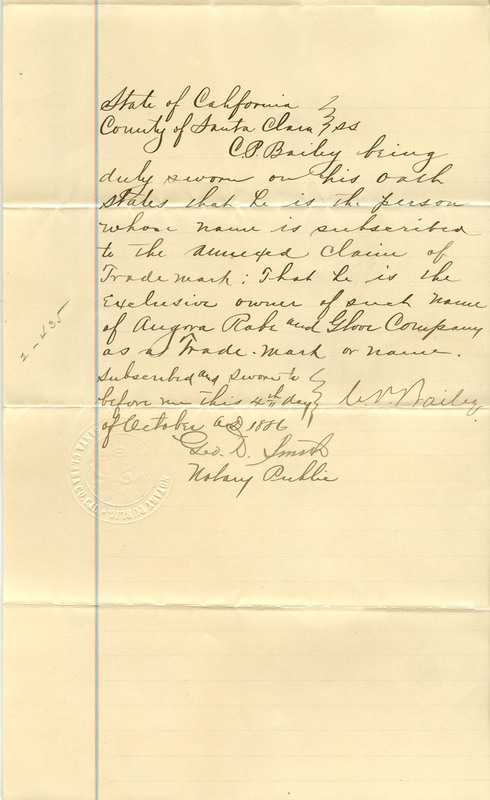 State of California
County of Santa Clara } ss
C.P. Bailey being
duly sworn on his oath
states that he is the person
whose name is subscribed
to the annexed claim of
Trade mark: That he is the
Exclusive owner of such name
of Angora Robe and Glove Company
as a Trade-mark or name.
Subscribed and sworn to
before me this 4th day } C.P. Bailey
of October AD 1886
Geo. D. Smith
Notary Public
2-435
NOTARY PUBLIC
SANTA CLARA CO.